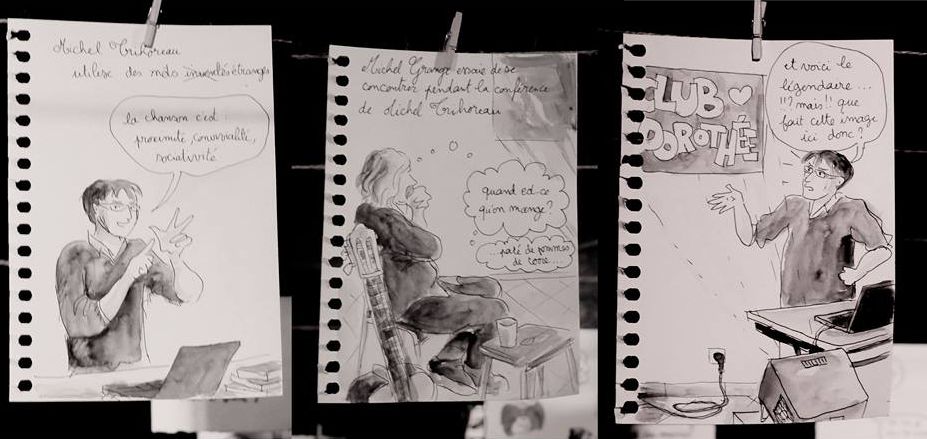 Michel Trihoreau
utilise des mots inventés étranges
la chanson c'est :
proximité, convivialité,
sociativité
Michel Grange essaie de se
concentrer pendant la conférence
de Michel Trihoreau
quand est-ce
qu'on mange?
...pâté de pommes
de terre...
CLUB
DOROTHÉE
et voici le
légendaire...
!!? mais!! que
fait cette image
ici donc?